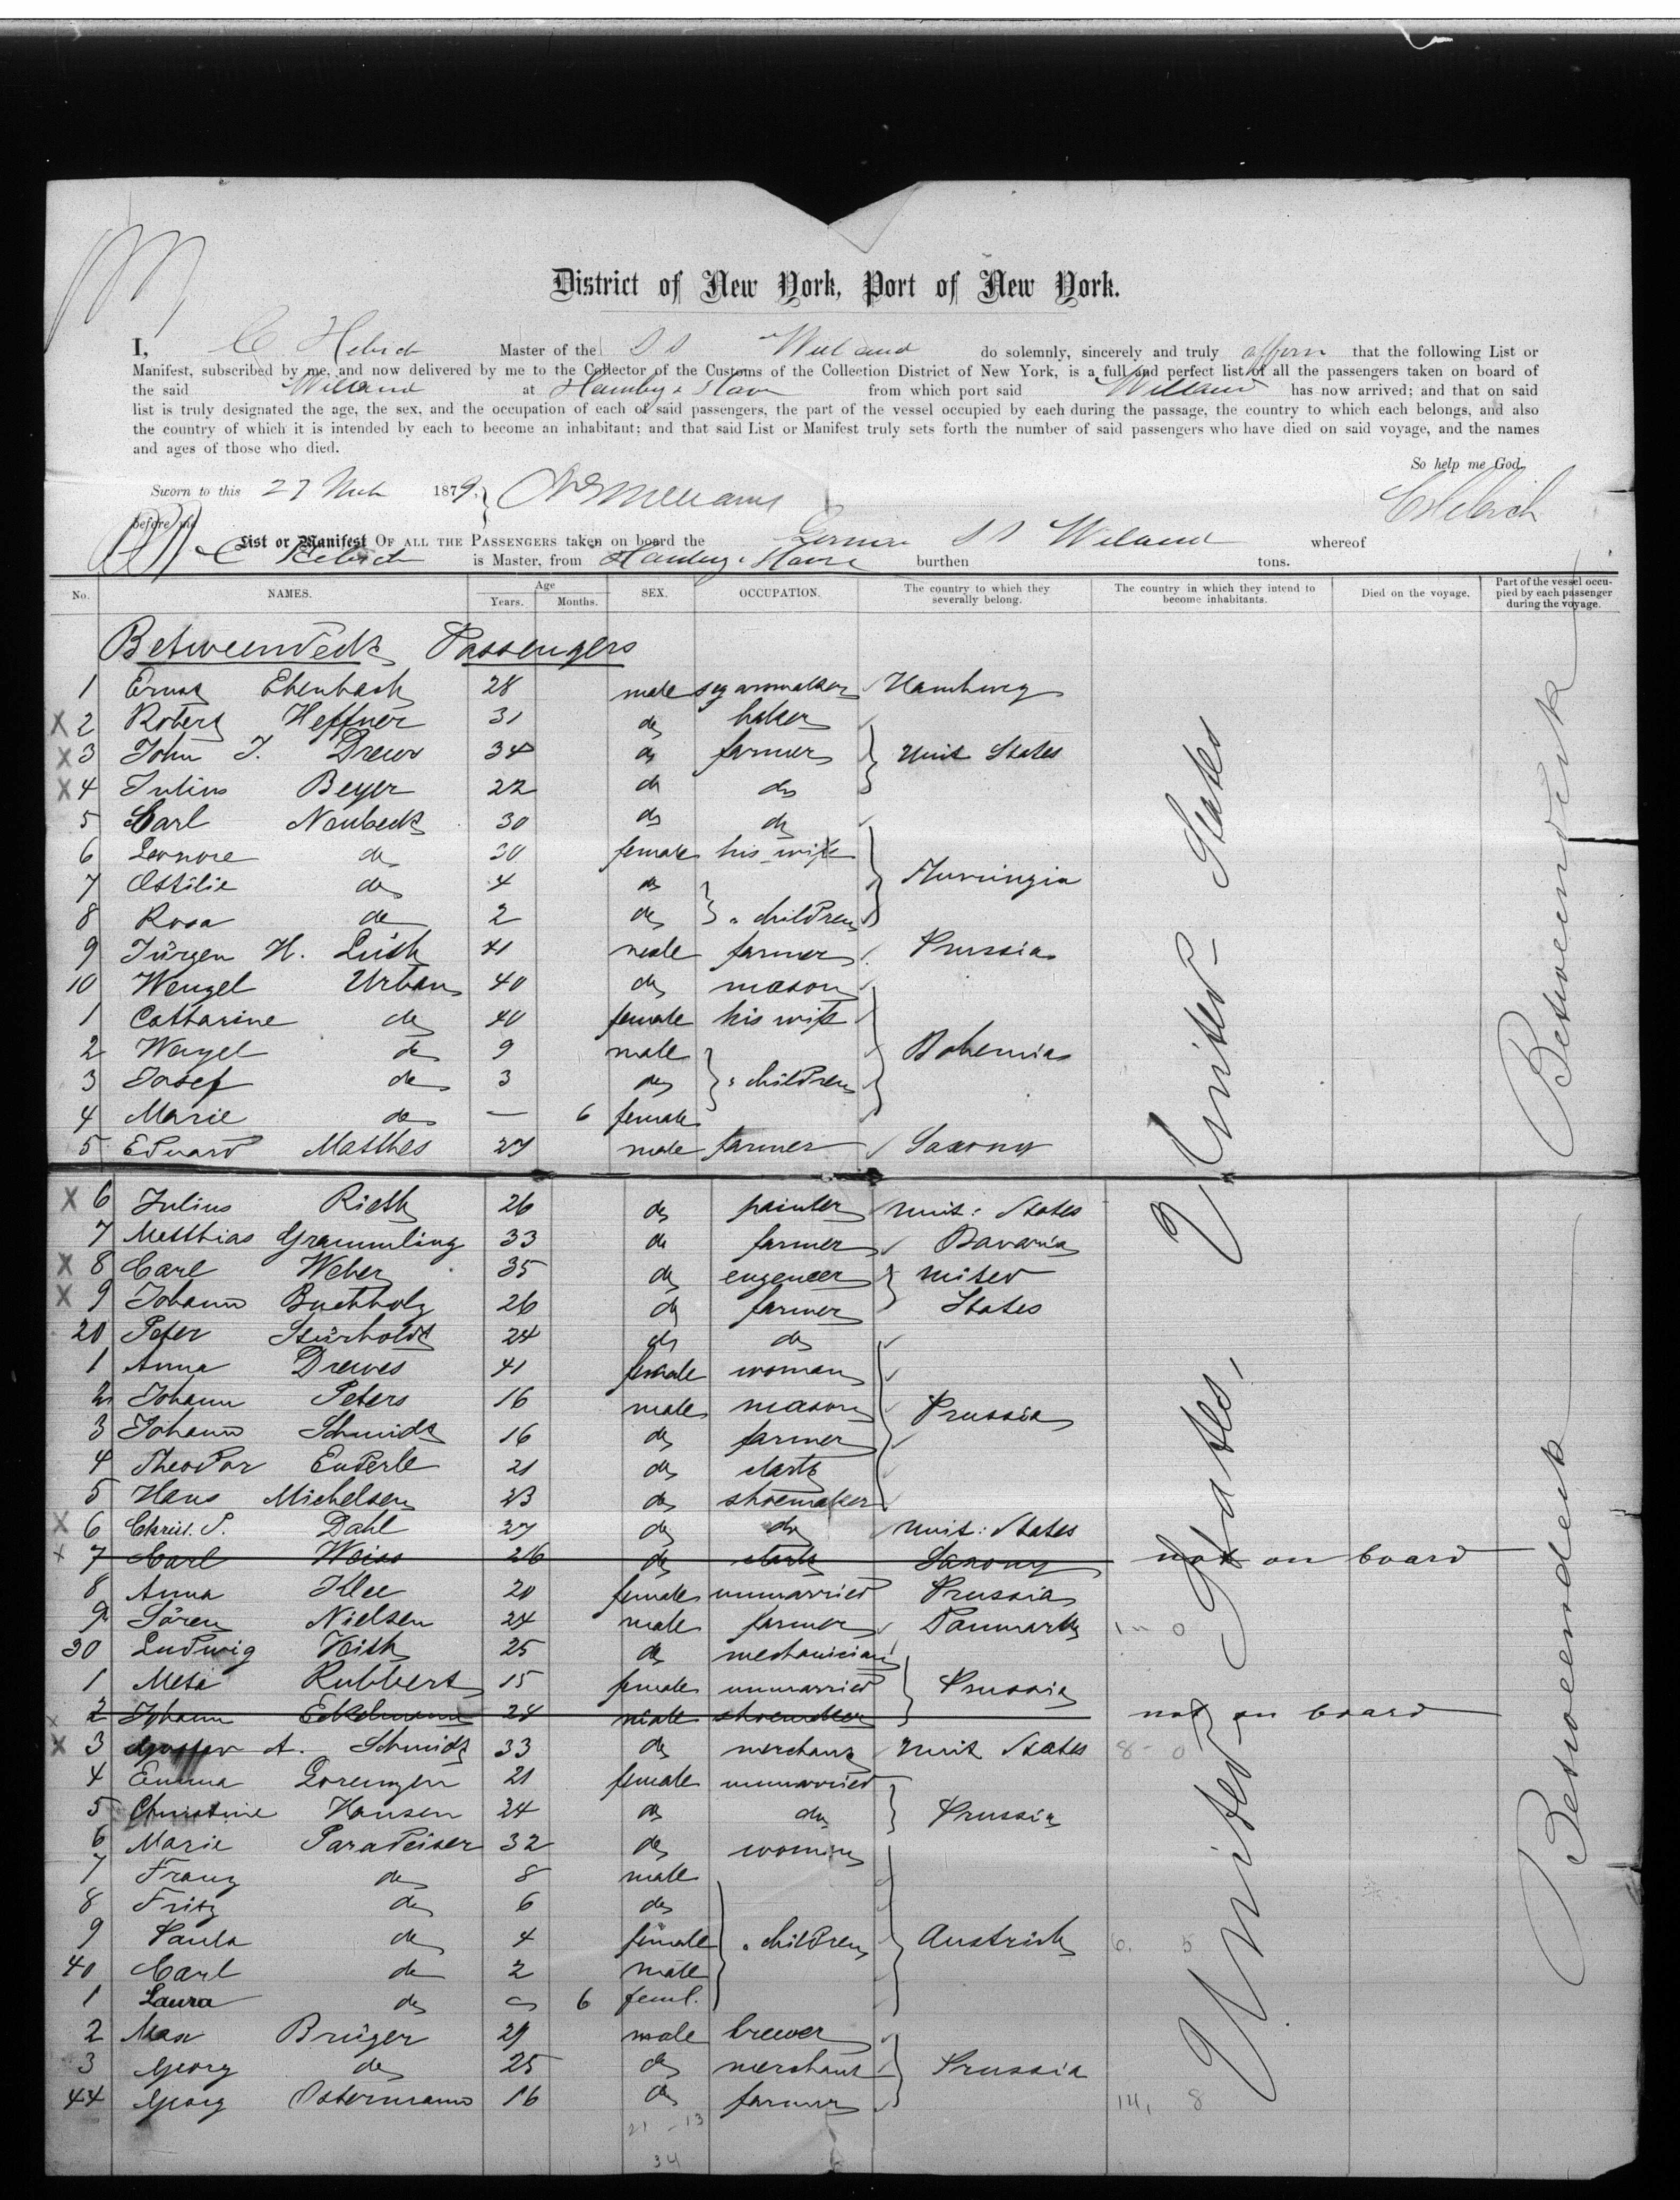 District of New York, Port of New York.
I, C Hebich Master of the S S Wieland do solemnly, sincerely and truly affirm that the following List or
Manifest, subscribed by me, and now delivered by me to the Collector of the Customs of the Collection District of New York, is a full and perfect list of all the passengers taken on board of
the said Wieland at Hamburg & Havre from which port said Wieland has now arrived; and that on said
list is truly designated the age, the sex, and the occupation of each of said passengers, the part of the vessel occupied by each during the passage, the country to which each belongs, and also
the country of which it is intended by each to become an inhabitant; and that said List or Manifest truly sets forth the number of said passengers who have died on said voyage, and the names
and ages of those who died.
So help me God.
Sworn to this 27 1879. CHebich
before me
List or Manifest OF ALL THE PASSENGERS taken on board the German SS Wieland whereof
C Hebich is Master, from Hamburg & Havre burthen tons.
No. NAMES. Age Years. Months. SEX. OCCUPATION. The country to which they severally belong. The country in which they intend to become inhabitants. Died on the voyage. Part of the vessel occupied by each passenger during the voyage.
Betweendeck Passengers
1 Ernst Ebenbach 28 male segarmaker Hamburg
X 2 Robert Heffner 31 do baker
X 3 John J. Drews 34 do farmer Unit States
X 4 Julius Beyer 22 do do
5 Carl Neubeck 30 do do
6 Leonore do 30 female his wife
7 Ottilie do 4 do Thuringia
8 Rosa do 2 do " children
9 Jürgen H. Lüth 41 male farmer Prussia
10 Wenzel Urban 40 do mason
1 Catharine do 40 female his wife
2 Wenzel do 9 male Bohemia
3 Josef do 3 do " children
4 Marie do — 6 female
5 Eduard Matthes 27 male farmer Saxony
X 6 Julius Rieth 26 do painter Unit: States
7 Matthias Grammling 33 do farmer Bavaria
X 8 Carl Weber 35 do engeneer United
X 9 Johann Buchholz 26 do farmer States
20 Peter Stürholdt 24 do do
1 Anna Drewes 41 female woman
2 Johann Peters 16 male mason Prussia
3 Johann Schmidt 16 do farmer
4 Theodor Enderle 21 do clark
5 Hans Michelsen 23 do shoemaker
X 6 Christ. P. Dahl 27 do do Unit: States
X 7 Carl Weiss 26 do clark Saxony not on board
8 Anna Klee 20 female unmarried Prussia
9 Sören Nielsen 24 male farmer Danmark
30 Ludwig Veith 25 do mechanician
1 Meta Rubbert 15 female unmarried Prussia
X 2 Johann Eckelmann 24 male shoemaker not on board
X 3 Gustav A. Schmidt 33 do merchant Unit States 8 - 0
4 Emma Lorenzen 21 female unmarried
5 Christine Hansen 24 do do Prussia
6 Marie Paradeiser 32 do woman
7 Franz do 8 male
8 Fritz do 6 do
9 Paula do 4 female " children Austrich 6. 5
40 Carl do 2 male
1 Laura do 6 feml.
2 Max Brüger 29 male brewer
3 Georg do 25 do merchant Prussia
44 Georg Ostermann 16 do farmer 14, 8
21 - 13
34
United States
United States,
Betweendeck
Betweendeck